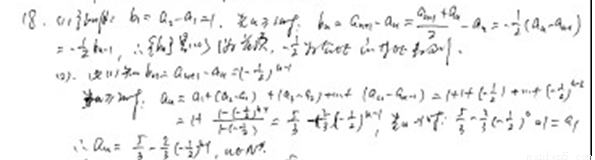 18. (1) 证明: b₁ = a₂ - a₁ = 1, 当 n ≥ 2 时, bₙ = aₙ₊₁ - aₙ = (aₙ₋₁ + aₙ)/2 - aₙ = -1/2 (aₙ - aₙ₋₁)
= -1/2 bₙ₋₁, ∴ {bₙ} 是以 1 为首项, -1/2 为公比的等比数列.
(2). 由(1)知 bₙ = aₙ₊₁ - aₙ = (-1/2)ⁿ⁻¹
当 n ≥ 2 时, aₙ = a₁ + (a₂ - a₁) + (a₃ - a₂) + … + (aₙ - aₙ₋₁) = 1 + 1 + (-1/2) + … + (-1/2)ⁿ⁻²
= 1 + (1 - (-1/2)ⁿ⁻¹)/(1 - (-1/2)) = 5/3 - 2/3 (-1/2)ⁿ⁻¹, 当 n = 1 时, 5/3 - 2/3 (-1/2)⁰ = 1 = a₁
∴ aₙ = 5/3 - 2/3 (-1/2)ⁿ⁻¹, n∈N*.